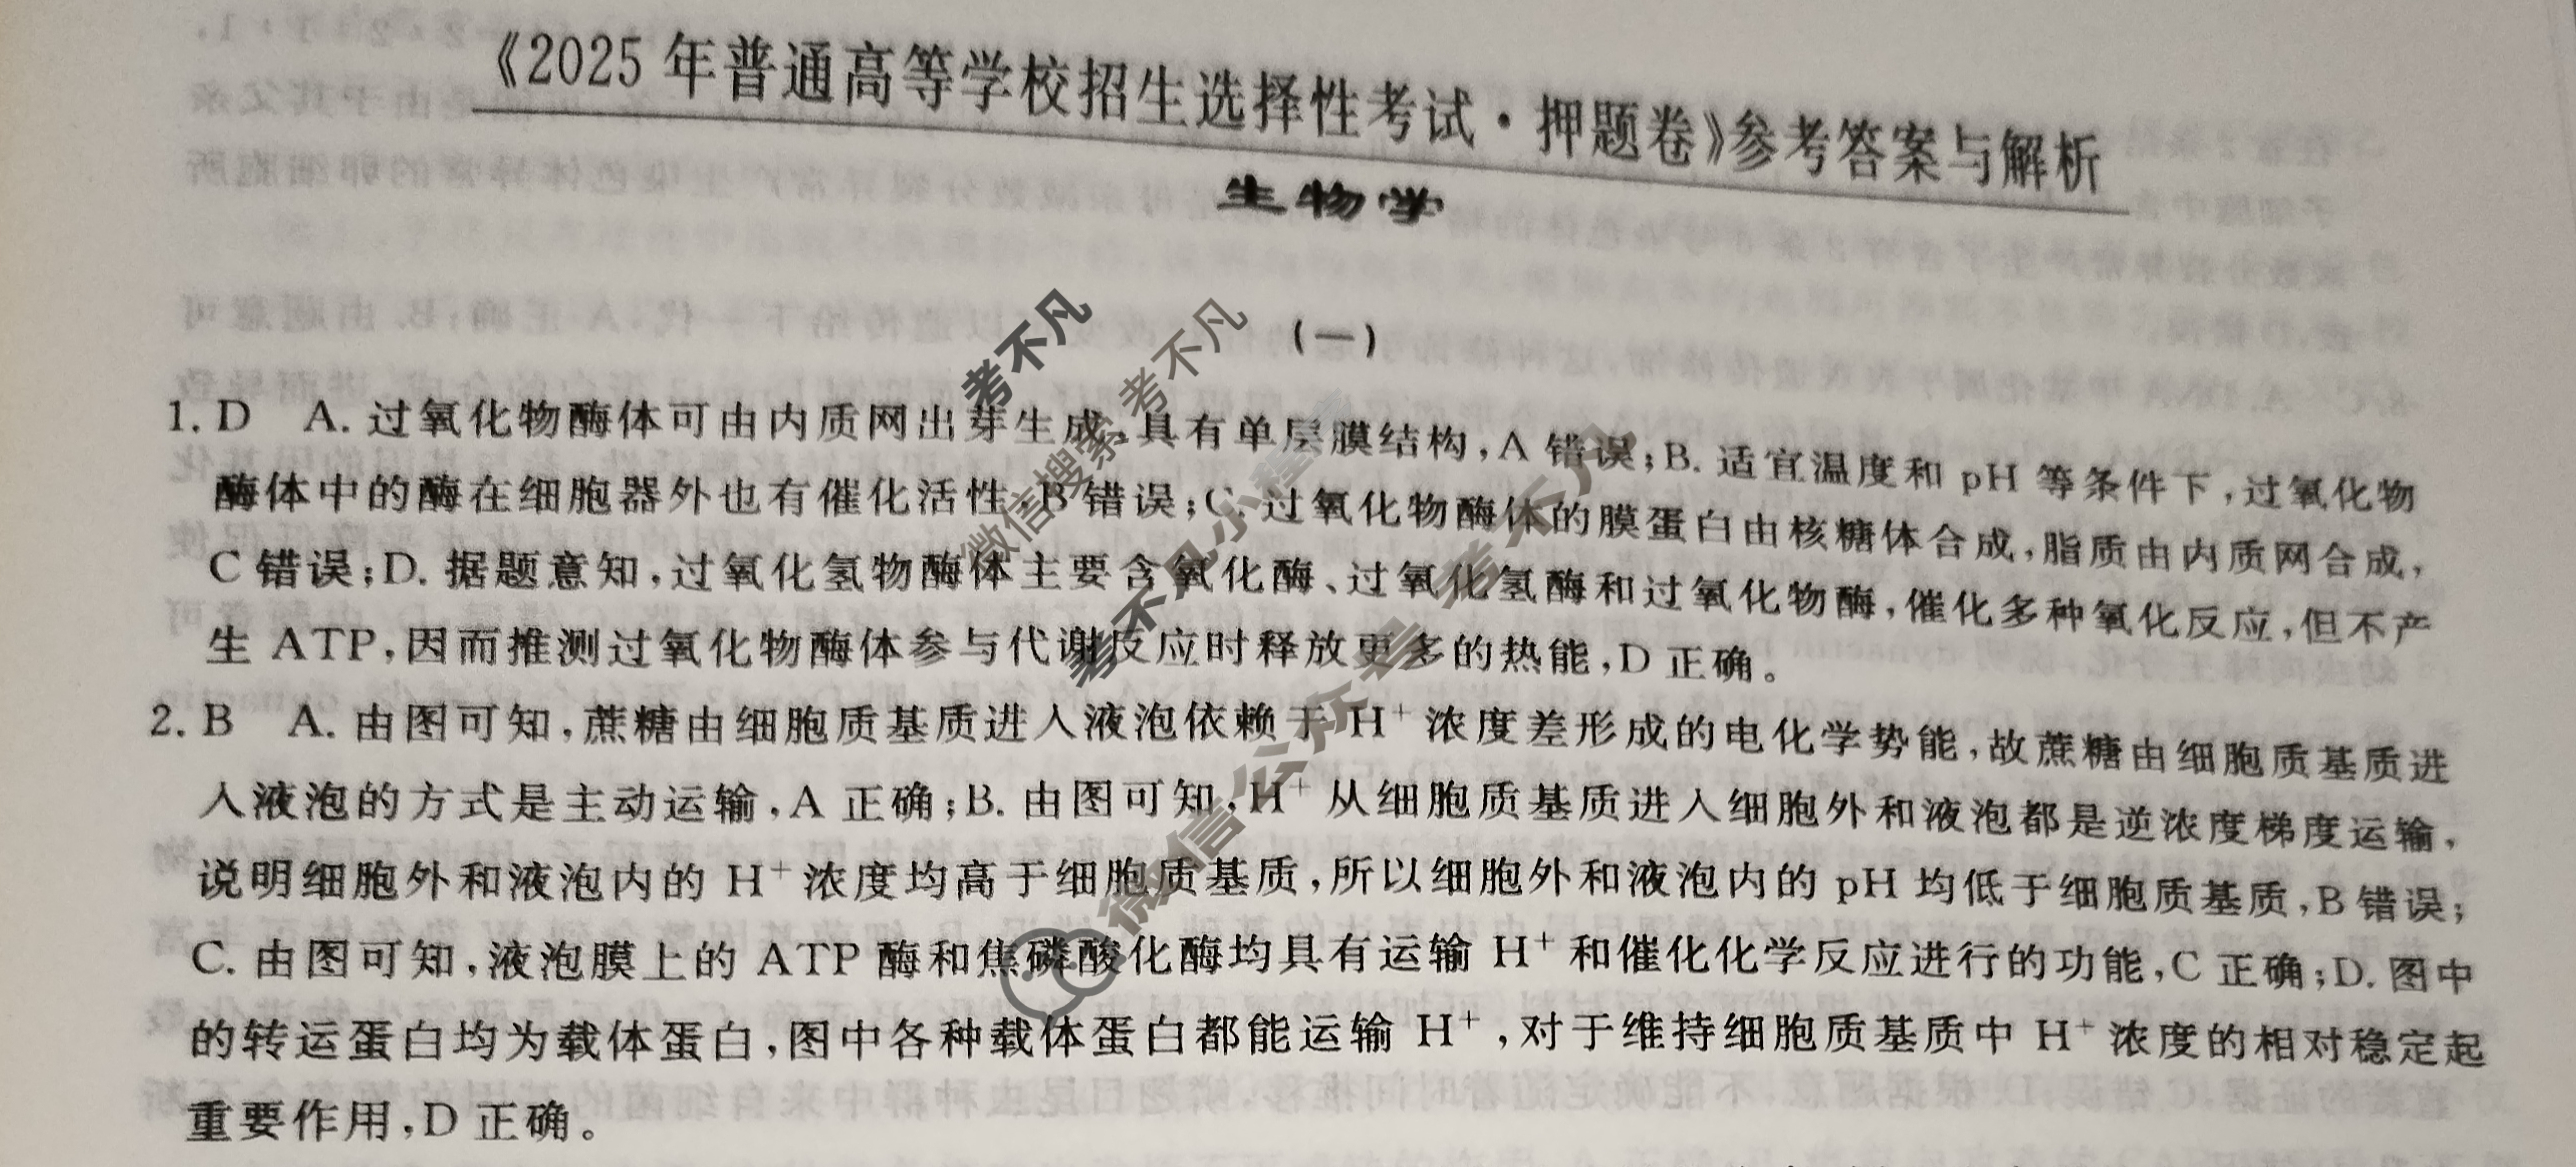 《2025 年普通高等学校招生选择性考试·押题卷》参考答案与解析
生物学
(一)
1. D A. 过氧化物酶体可由内质网出芽生成,具有单层膜结构,A 错误;B. 适宜温度和 pH 等条件下,过氧化物
酶体中的酶在细胞器外也有催化活性,B 错误;C. 过氧化物酶体的膜蛋白由核糖体合成,脂质由内质网合成,
C 错误;D. 据题意知,过氧化氢物酶体主要含氧化酶、过氧化氢酶和过氧化物酶,催化多种氧化反应,但不产
生 ATP,因而推测过氧化物酶体参与代谢反应时释放更多的热能,D 正确。
2. B A. 由图可知,蔗糖由细胞质基质进入液泡依赖于 H⁺ 浓度差形成的电化学势能,故蔗糖由细胞质基质进
入液泡的方式是主动运输,A 正确;B. 由图可知,H⁺ 从细胞质基质进入细胞外和液泡都是逆浓度梯度运输,
说明细胞外和液泡内的 H⁺ 浓度均高于细胞质基质,所以细胞外和液泡内的 pH 均低于细胞质基质,B 错误;
C. 由图可知,液泡膜上的 ATP 酶和焦磷酸化酶均具有运输 H⁺ 和催化化学反应进行的功能,C 正确;D. 图中
的转运蛋白均为载体蛋白,图中各种载体蛋白都能运输 H⁺,对于维持细胞质基质中 H⁺ 浓度的相对稳定起
重要作用,D 正确。
考不凡
微信搜索 考不凡
考不凡小程序
微信公众号 考不凡